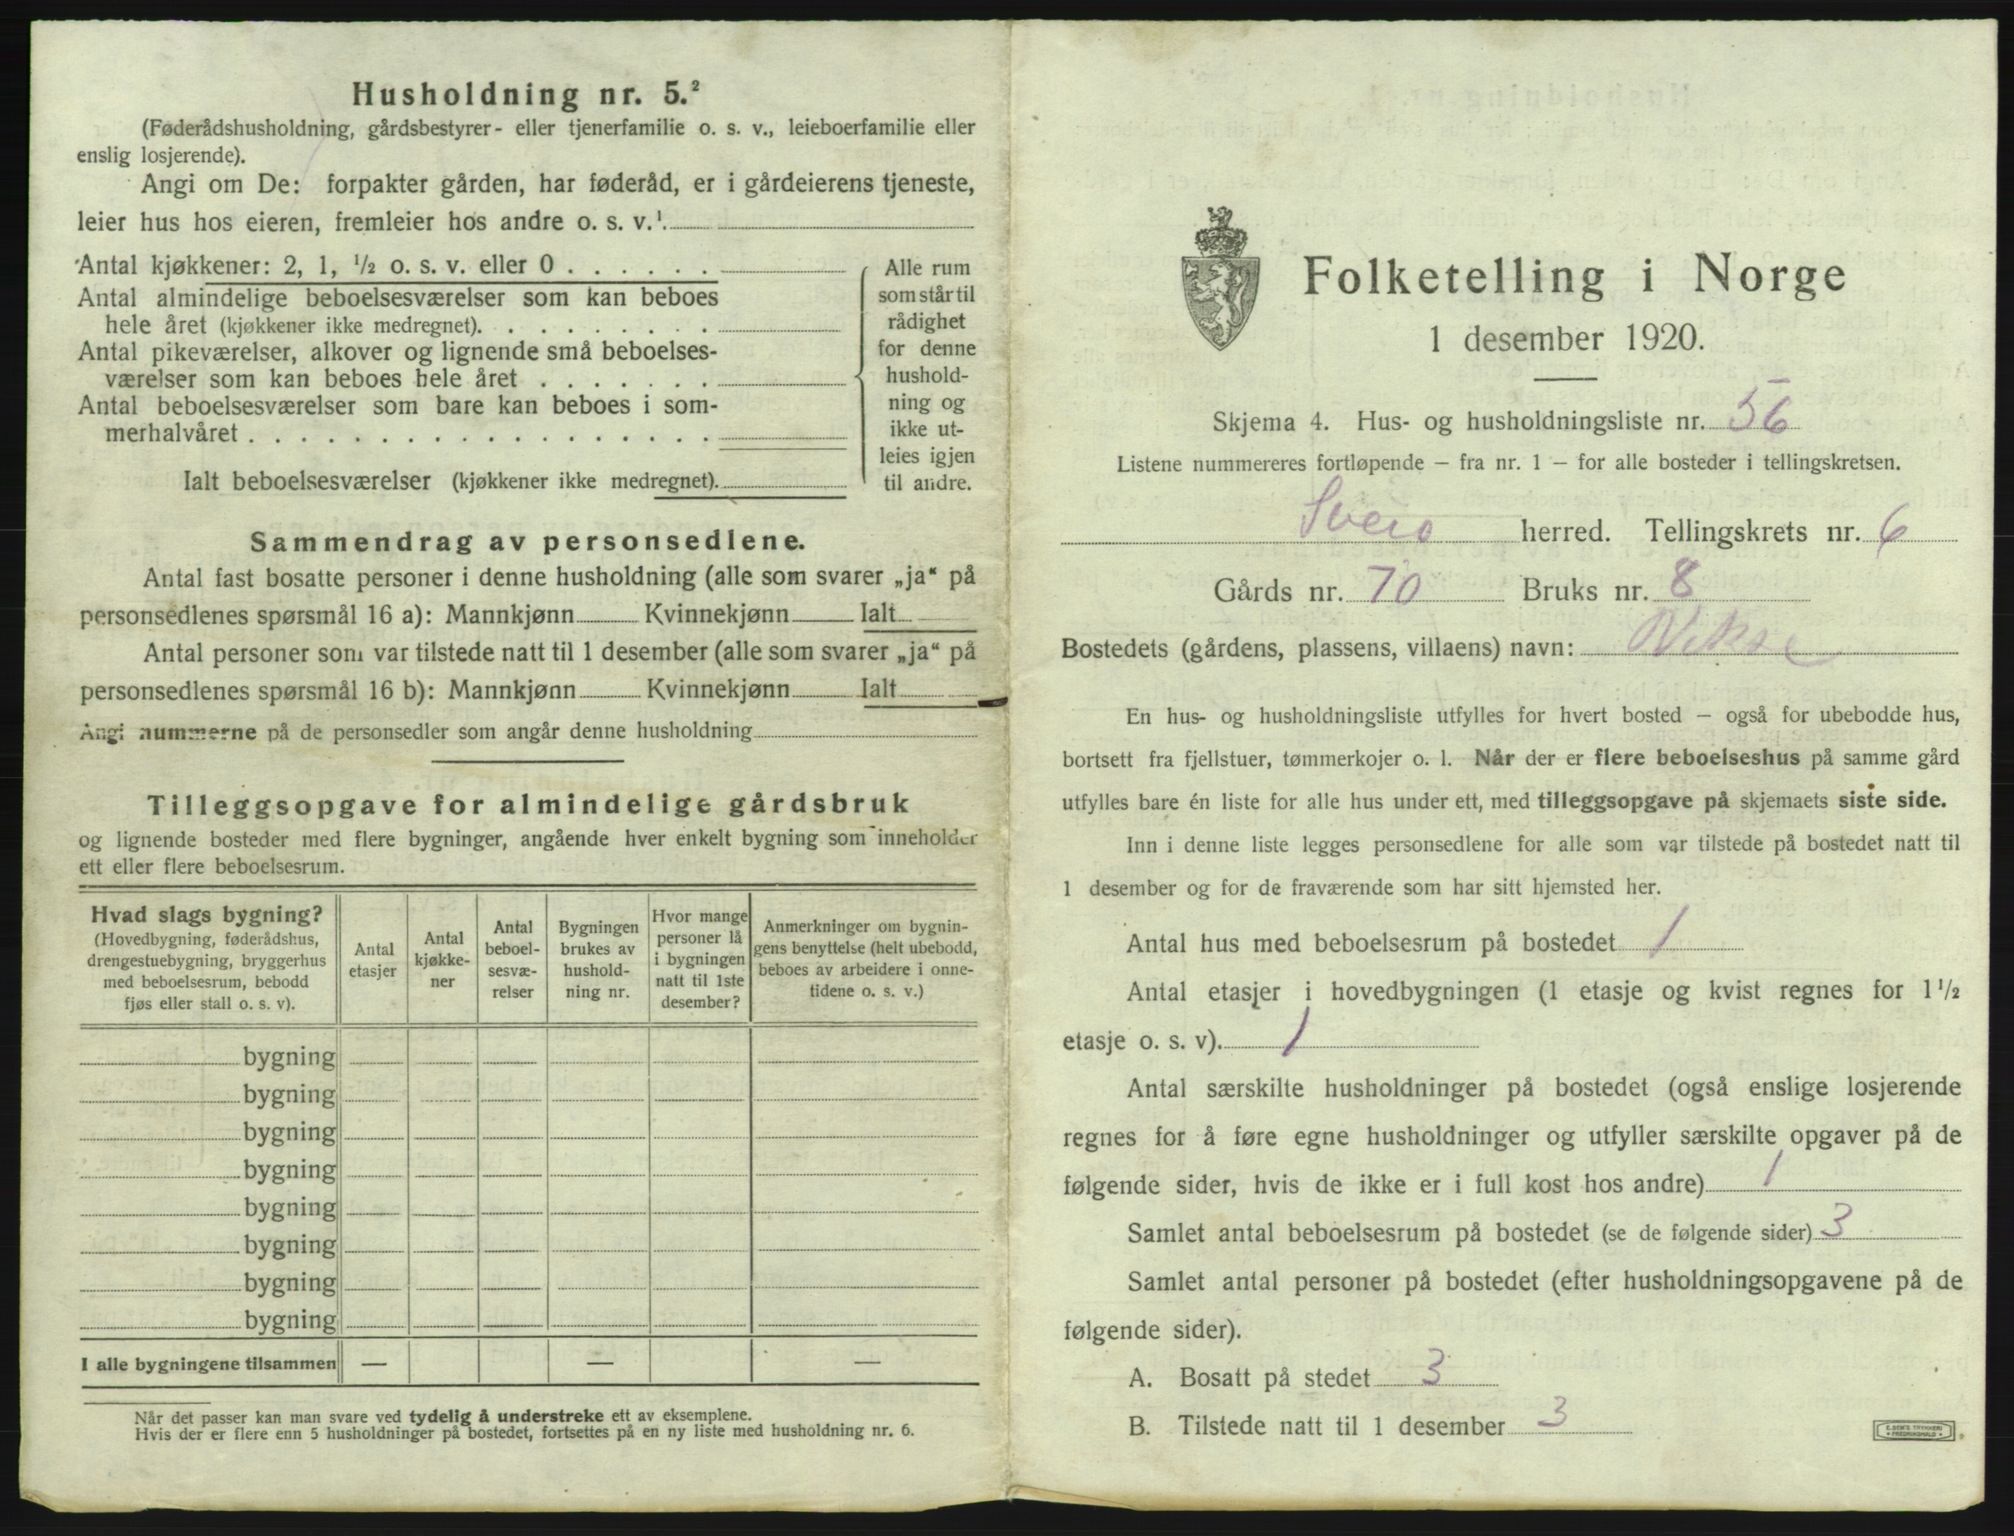 Husholdning nr. 5.²
(Føderådshusholdning, gårdsbestyrer- eller tjenerfamilie o. s. v., leieboerfamilie eller
enslig losjerende).
Angi om De: forpakter gården, har føderåd, er i gårdeierens tjeneste,
leier hus hos eieren, fremleier hos andre o. s. v.¹.
Antal kjøkkener: 2, 1, ½ o. s. v. eller 0 . . . . . .
Antal almindelige beboelsesværelser som kan beboes
hele året (kjøkkener ikke medregnet). . . . . . . . .
Antal pikeværelser, alkover og lignende små beboelses-
værelser som kan beboes hele året . . . . . . .
Antal beboelsesværelser som bare kan beboes i som-
merhalvåret . . . . . . . . . . . . . . . . . .
Ialt beboelsesværelser (kjøkkener ikke medregnet).
Alle rum
som står til
rådighet
for denne
hushold-
ning og
ikke ut-
leies igjen
til andre.
Sammendrag av personsedlene.
Antal fast bosatte personer i denne husholdning (alle som svarer „ja“ på
personsedlenes spørsmål 16 a): Mannkjønn Kvinnekjønn Ialt
Antal personer som var tilstede natt til 1 desember (alle som svarer „ja“ på
personsedlenes spørsmål 16 b): Mannkjønn Kvinnekjønn Ialt
Angi nummerne på de personsedler som angår denne husholdning
Tilleggsopgave for almindelige gårdsbruk
og lignende bosteder med flere bygninger, angående hver enkelt bygning som inneholder
ett eller flere beboelsesrum.
Hvad slags bygning?
(Hovedbygning, føderådshus,
drengestuebygning, bryggerhus
med beboelsesrum, bebodd
fjøs eller stall o. s. v).
Antal
etasjer
Antal
kjøkke-
ner
Antal
beboel-
sesvæ-
relser
Bygningen
brukes av
hushold-
ning nr.
Hvor mange
personer lå
i bygningen
natt til 1ste
desember?
Anmerkninger om bygnin-
gens benyttelse (helt ubebodd,
beboes av arbeidere i onne-
tidene o. s. v.)
bygning
bygning
bygning
bygning
bygning
bygning
bygning
bygning
I alle bygningene tilsammen — — —
Når det passer kan man svare ved tydelig å understreke ett av eksemplene.
Hvis der er flere enn 5 husholdninger på bostedet, fortsettes på en ny liste med husholdning nr. 6.
Folketelling i Norge
1 desember 1920.
Skjema 4. Hus- og husholdningsliste nr. 56
Listene nummereres fortløpende – fra nr. 1 – for alle bosteder i tellingskretsen.
Sveio herred. Tellingskrets nr. 6
Gårds nr. 70 Bruks nr. 8
Bostedets (gårdens, plassens, villaens) navn: Vikse
En hus- og husholdningsliste utfylles for hvert bosted – også for ubebodde hus,
bortsett fra fjellstuer, tømmerkojer o. l. Når der er flere beboelseshus på samme gård
utfylles bare én liste for alle hus under ett, med tilleggsopgave på skjemaets siste side.
Inn i denne liste legges personsedlene for alle som var tilstede på bostedet natt til
1 desember og for de fraværende som har sitt hjemsted her.
Antal hus med beboelsesrum på bostedet 1
Antal etasjer i hovedbygningen (1 etasje og kvist regnes for 1½
etasje o. s. v). 1
Antal særskilte husholdninger på bostedet (også enslige losjerende
regnes for å føre egne husholdninger og utfyller særskilte opgaver på de
følgende sider, hvis de ikke er i full kost hos andre) 1
Samlet antal beboelsesrum på bostedet (se de følgende sider) 3
Samlet antal personer på bostedet (efter husholdningsopgavene på de
følgende sider).
A. Bosatt på stedet 3
B. Tilstede natt til 1 desember 3